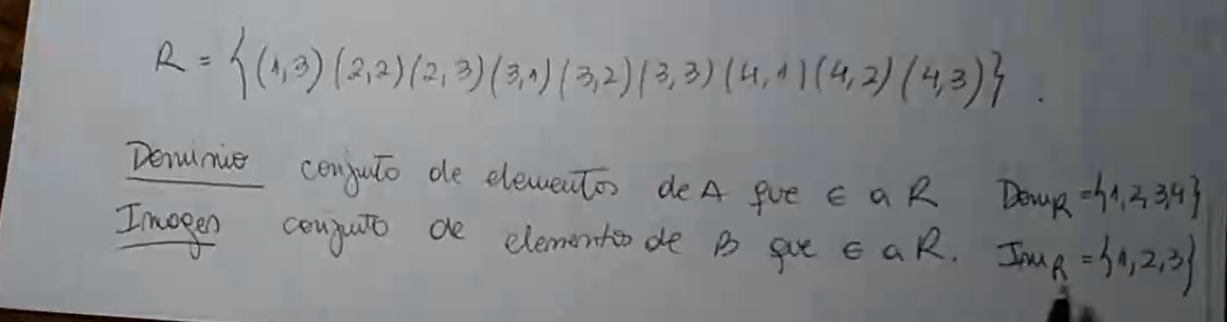 R = {(1,3)(2,2)(2,3)(3,1)(3,2)(3,3)(4,1)(4,2)(4,3)}.
Dominio conjuto de elementos de A que ∈ a R Dom_R = {1,2,3,4}
Imagen conjuto de elementos de B que ∈ a R. Im_R = {1,2,3}